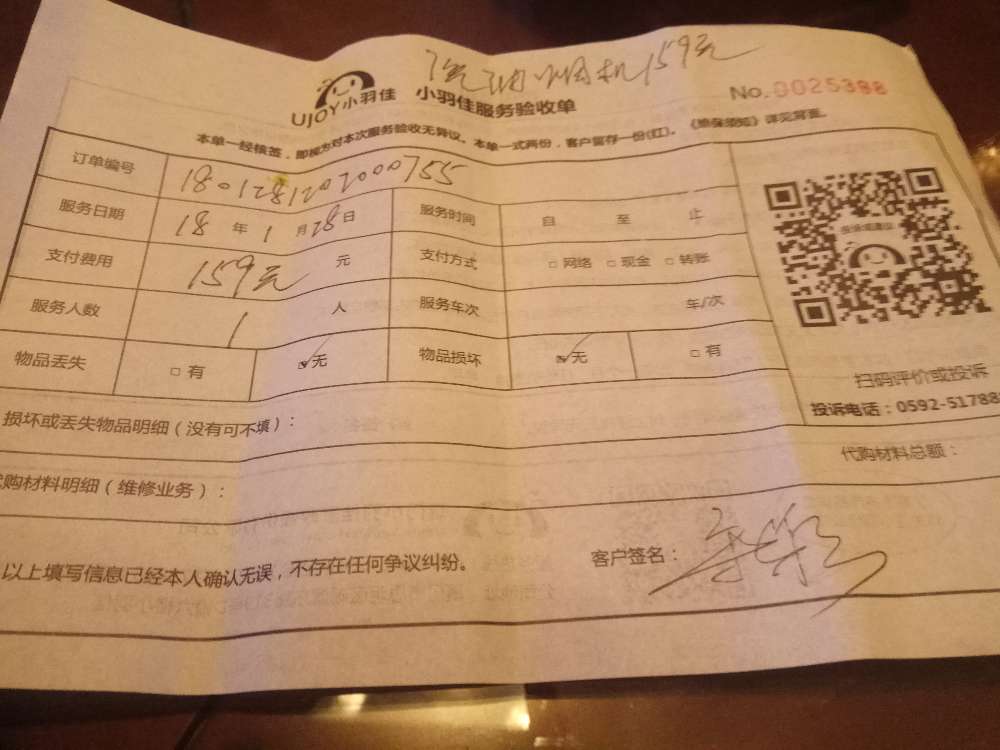 油烟机159元
UJOY小羽佳 小羽佳服务验收单 No.0025398
本单一经核签,即视为对本次服务验收无异议。本单一式两份,客户留存一份(红)。《维保须知》详见背面。
订单编号 1801281202000755
服务日期 18年1月28日 服务时间 自 至 止
支付费用 159元 元 支付方式 □网络 □现金 □转账
服务人数 1 人 服务车次 车/次
物品丢失 □有 ☑无 物品损坏 ☑无 □有
扫码评价或投诉
投诉电话:0592-517888
损坏或丢失物品明细(没有可不填):
购材料明细(维修业务): 代购材料总额:
以上填写信息已经本人确认无误,不存在任何争议纠纷。 客户签名: